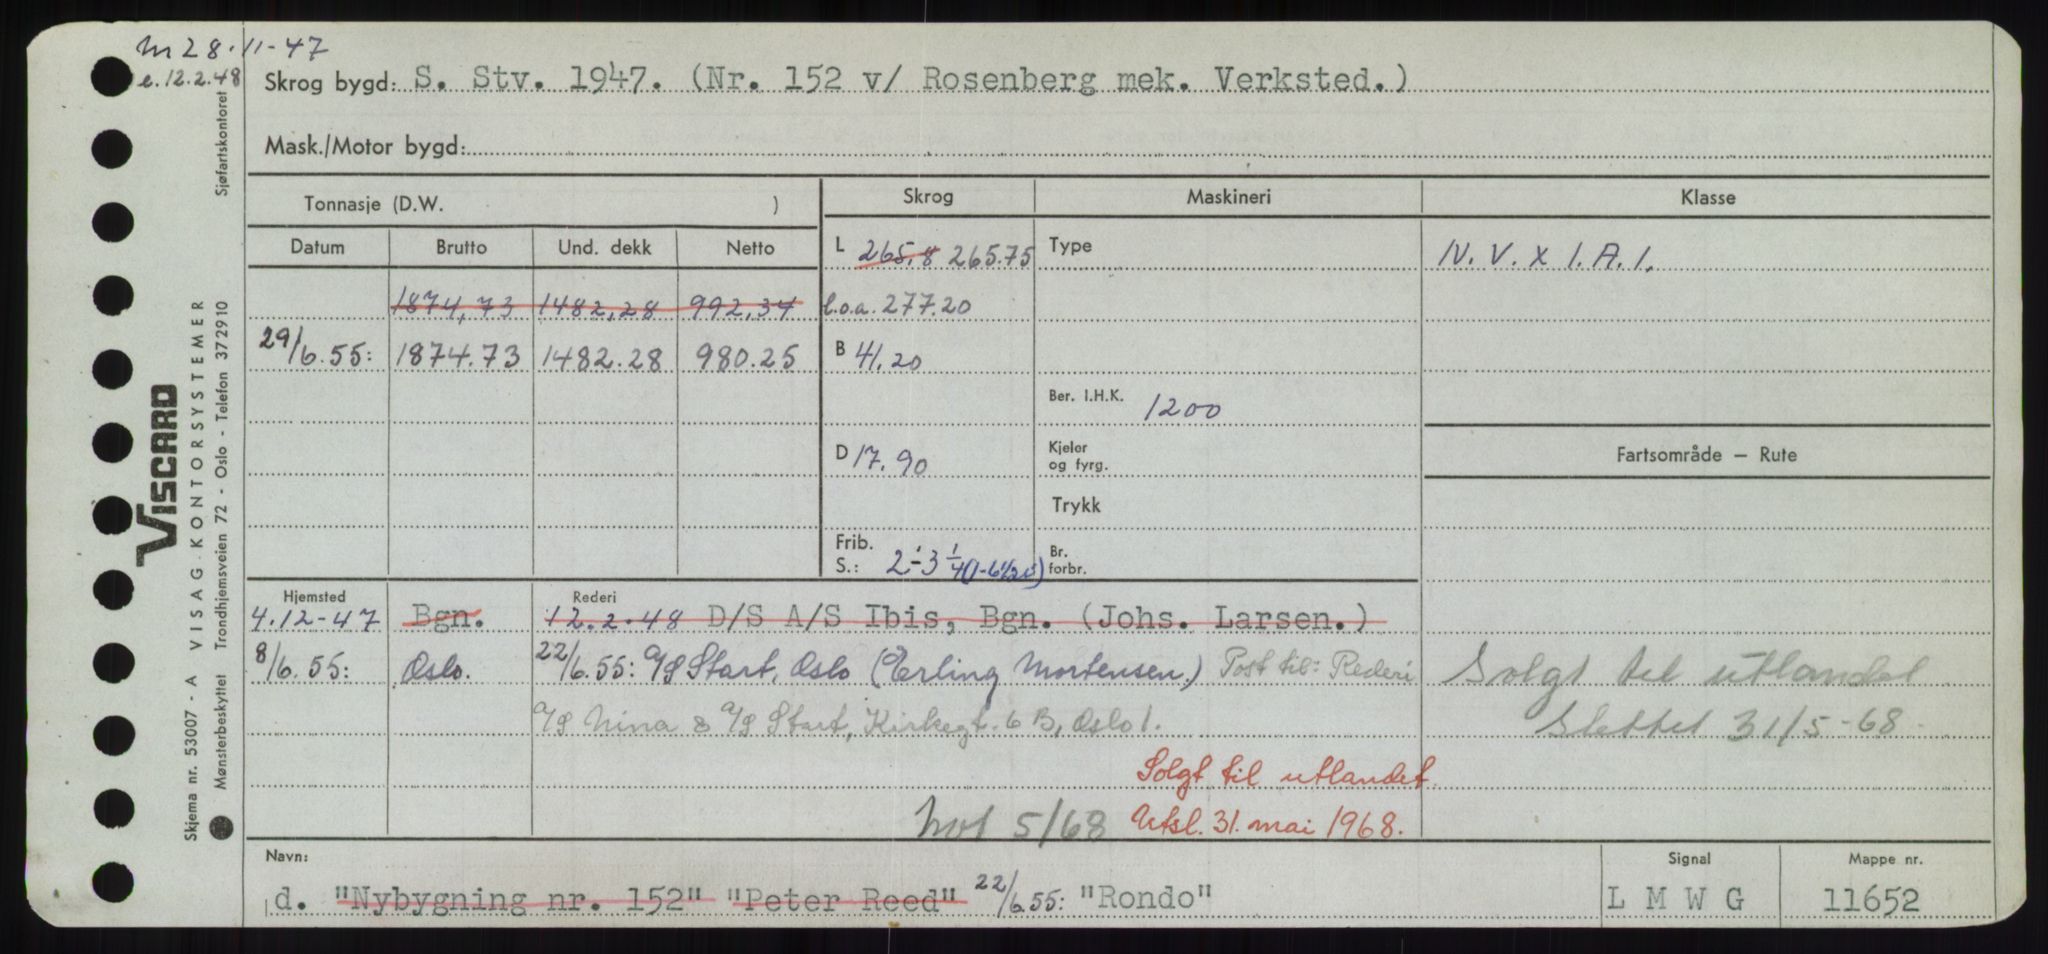 m 28.11-47
e. 12.2.48
Skrog bygd: S. Stv. 1947. (Nr. 152 v/ Rosenberg mek. Verksted.)
Mask./Motor bygd:
Tonnasje (D.W. )
Skrog
Maskineri
Klasse
Datum Brutto Und. dekk Netto
L 265,8 265.75
Type
N. V. x 1. A. 1.
1874,73 1482,28 992,34
l.o.a. 277.20
29/6.55: 1874.73 1482.28 980.25
B 41.20
Ber. I.H.K. 1200
D 17.90
Kjeler
og fyrg.
Fartsområde – Rute
Trykk
Frib.
S.: 2-3 1/4
Br.
forbr.
Hjemsted
Rederi
4.12-47 Bgn. 12.2.48 D/S A/S Ibis, Bgn. (Johs. Larsen.)
8/6.55: Oslo. 22/6.55: A/S Start, Oslo (Erling Mortensen.) Post til: Rederi
Solgt til utlandet
A/S Nina & A/S Start, Kirkegt. 6 B, Oslo 1.
Slettet 31/5-68
Solgt til utlandet.
Not 5/68
Utsl. 31. mai 1968.
Navn:
Signal
Mappe nr.
d. "Nybygning nr. 152" "Peter Reed" 22/6.55: "Rondo"
L M W G
11652
VISCARD
Skjema nr. 53007 - A VISAG KONTORSYSTEMER
Mønsterbeskyttet Trondhjemsveien 72 - Oslo - Telefon 372910 Sjøfartskontoret